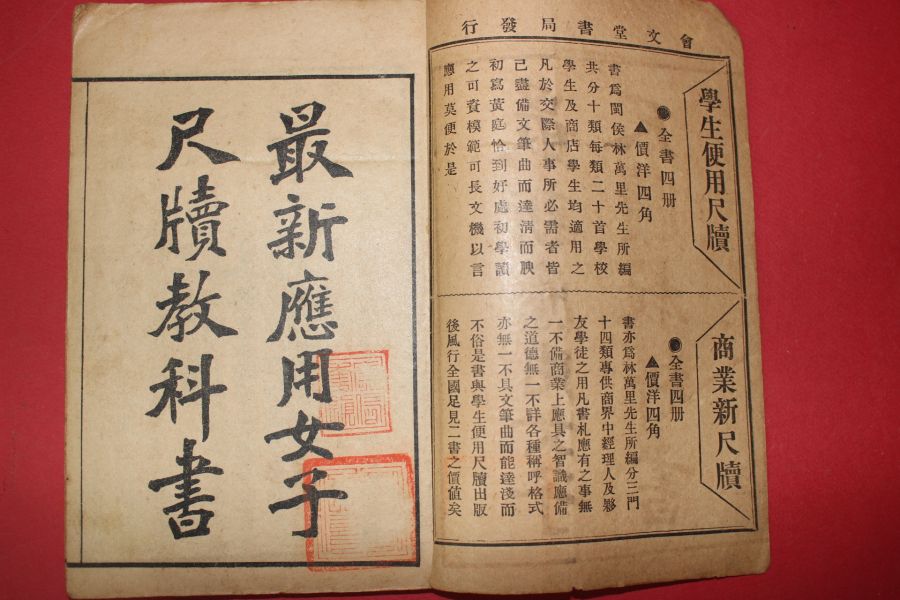 會文堂書局發行
學生便用尺牘
●全書四册
▲價洋四角
書爲閩侯林萬里先生所編
共分十類每類二十首學校
學生及商店學生均適用之
凡於交際人事所必需者皆
己盡備文筆曲而達清而腴
初寫黃庭恰到好處初學讀
之可資模範可長文機以言
應用莫便於是
商業新尺牘
●全書四册
▲價洋四角
書亦爲林萬里先生所編分三門
十四類專供商界中經理人及夥
友學徒之用凡書札應有之事無
一不備商業上應具之智識應備
之道德無一不詳各種稱呼格式
亦無一不具文筆曲而能達淺而
不俗是書與學生便用尺牘出版
後風行全國足見二書之價值矣
最新應用女子
尺牘教科書